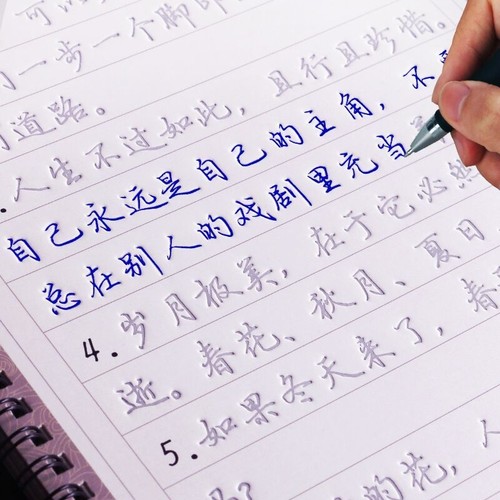 可以
一步一个脚印
道路。
人生不过如此，且行且珍惜。
自己永远是自己的主角，不要
总在别人的戏剧里充当
4.岁月极美，在于它必然
逝。春花、秋月、夏日、
5.如果冬天来了，春
的花，人